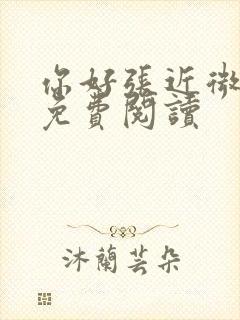 你好張近微
免費閱讀
沐蘭芸朵